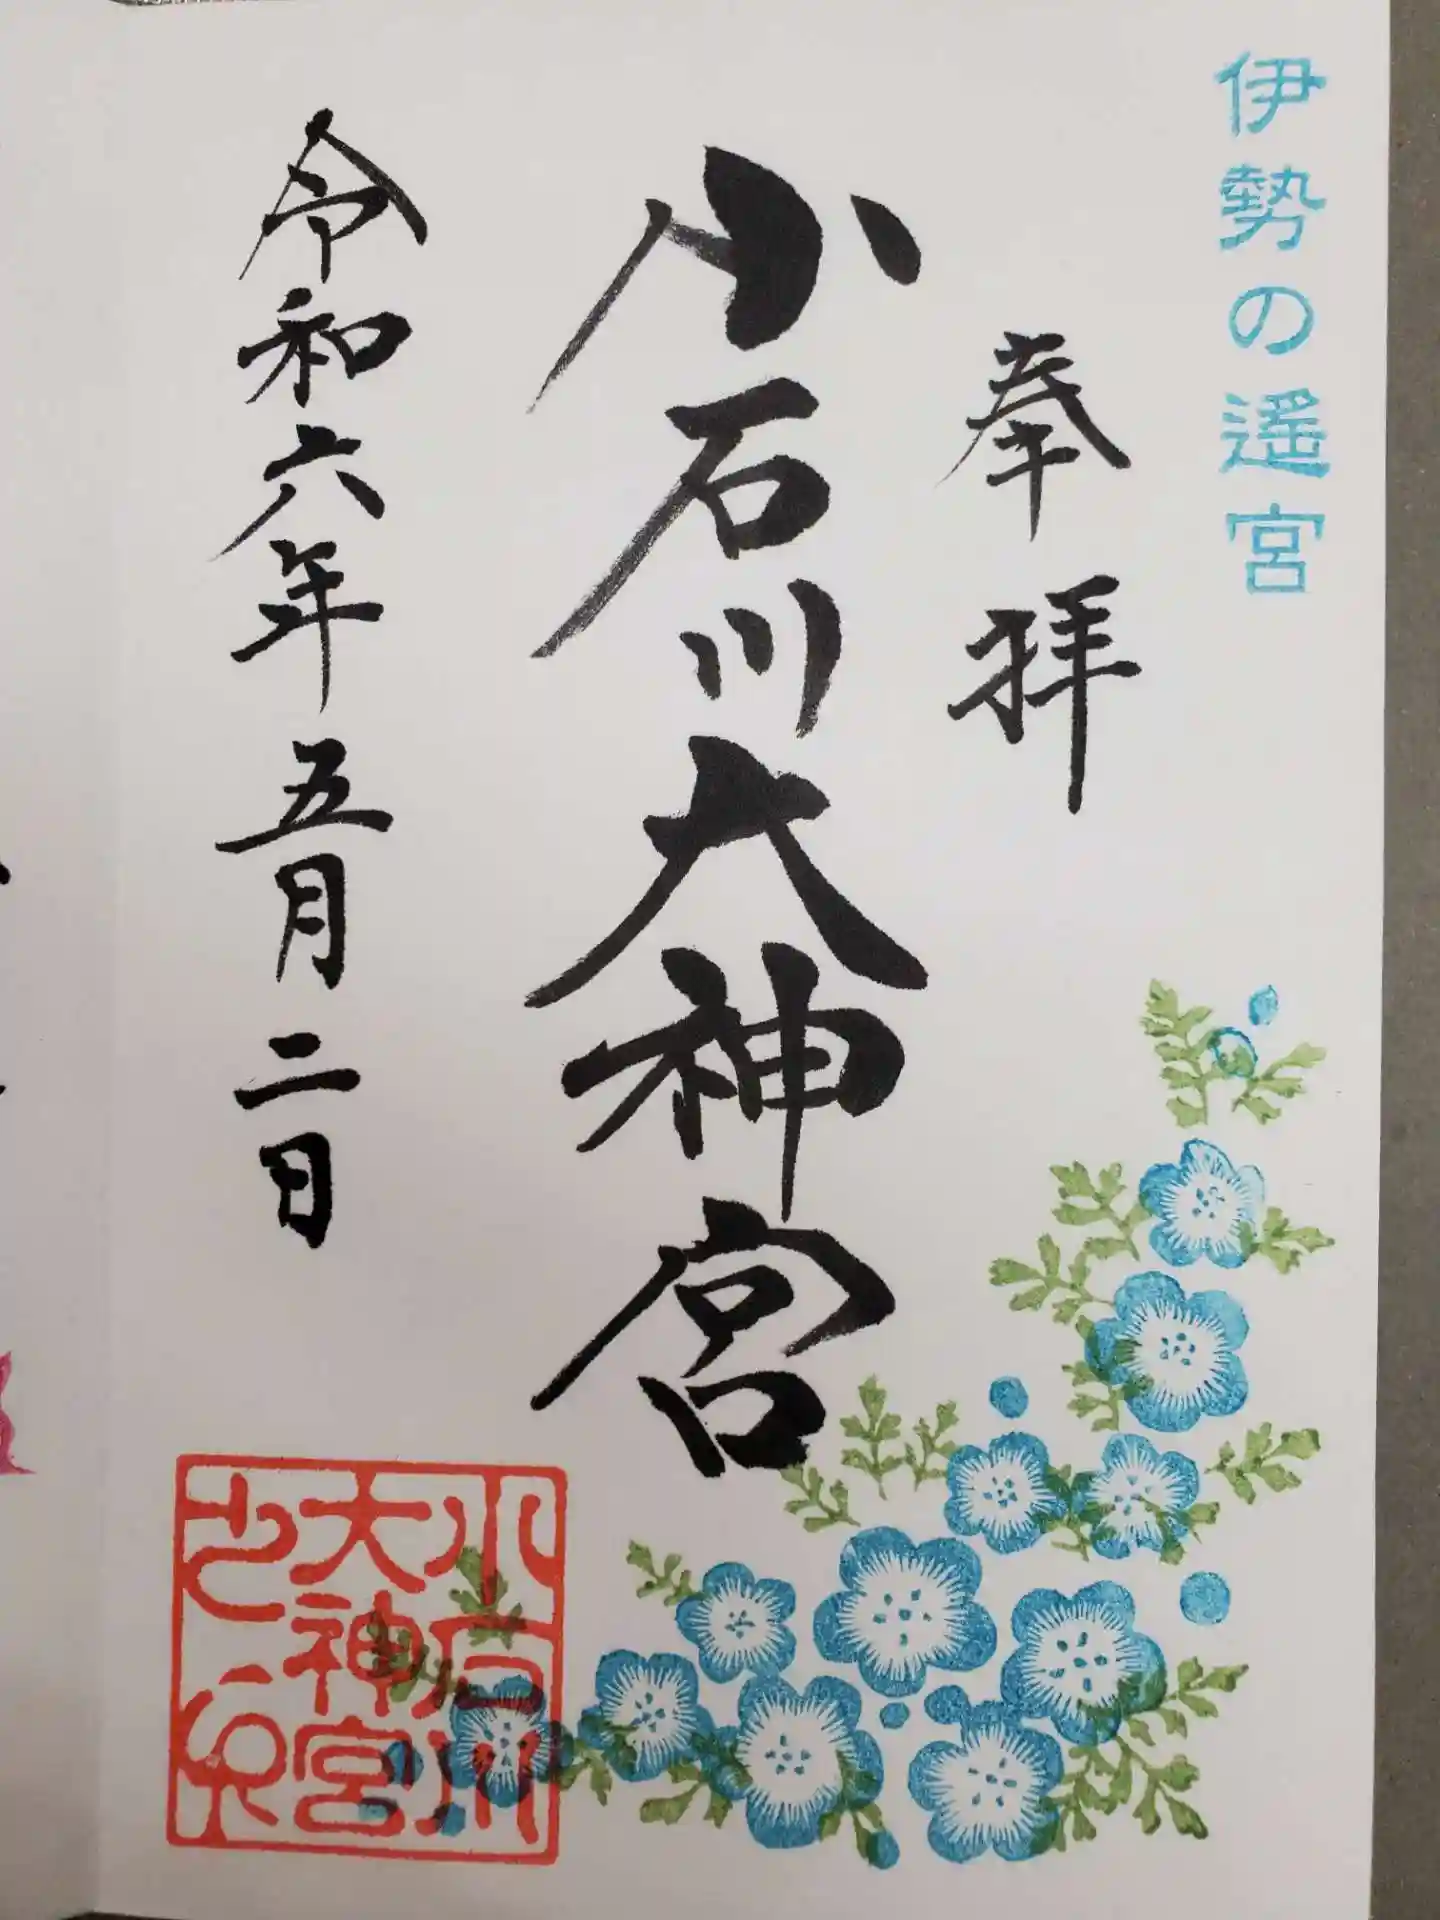 伊勢の遥宮
奉拝
小石川大神宮
令和六年五月二日
小石川
大神宮
之印